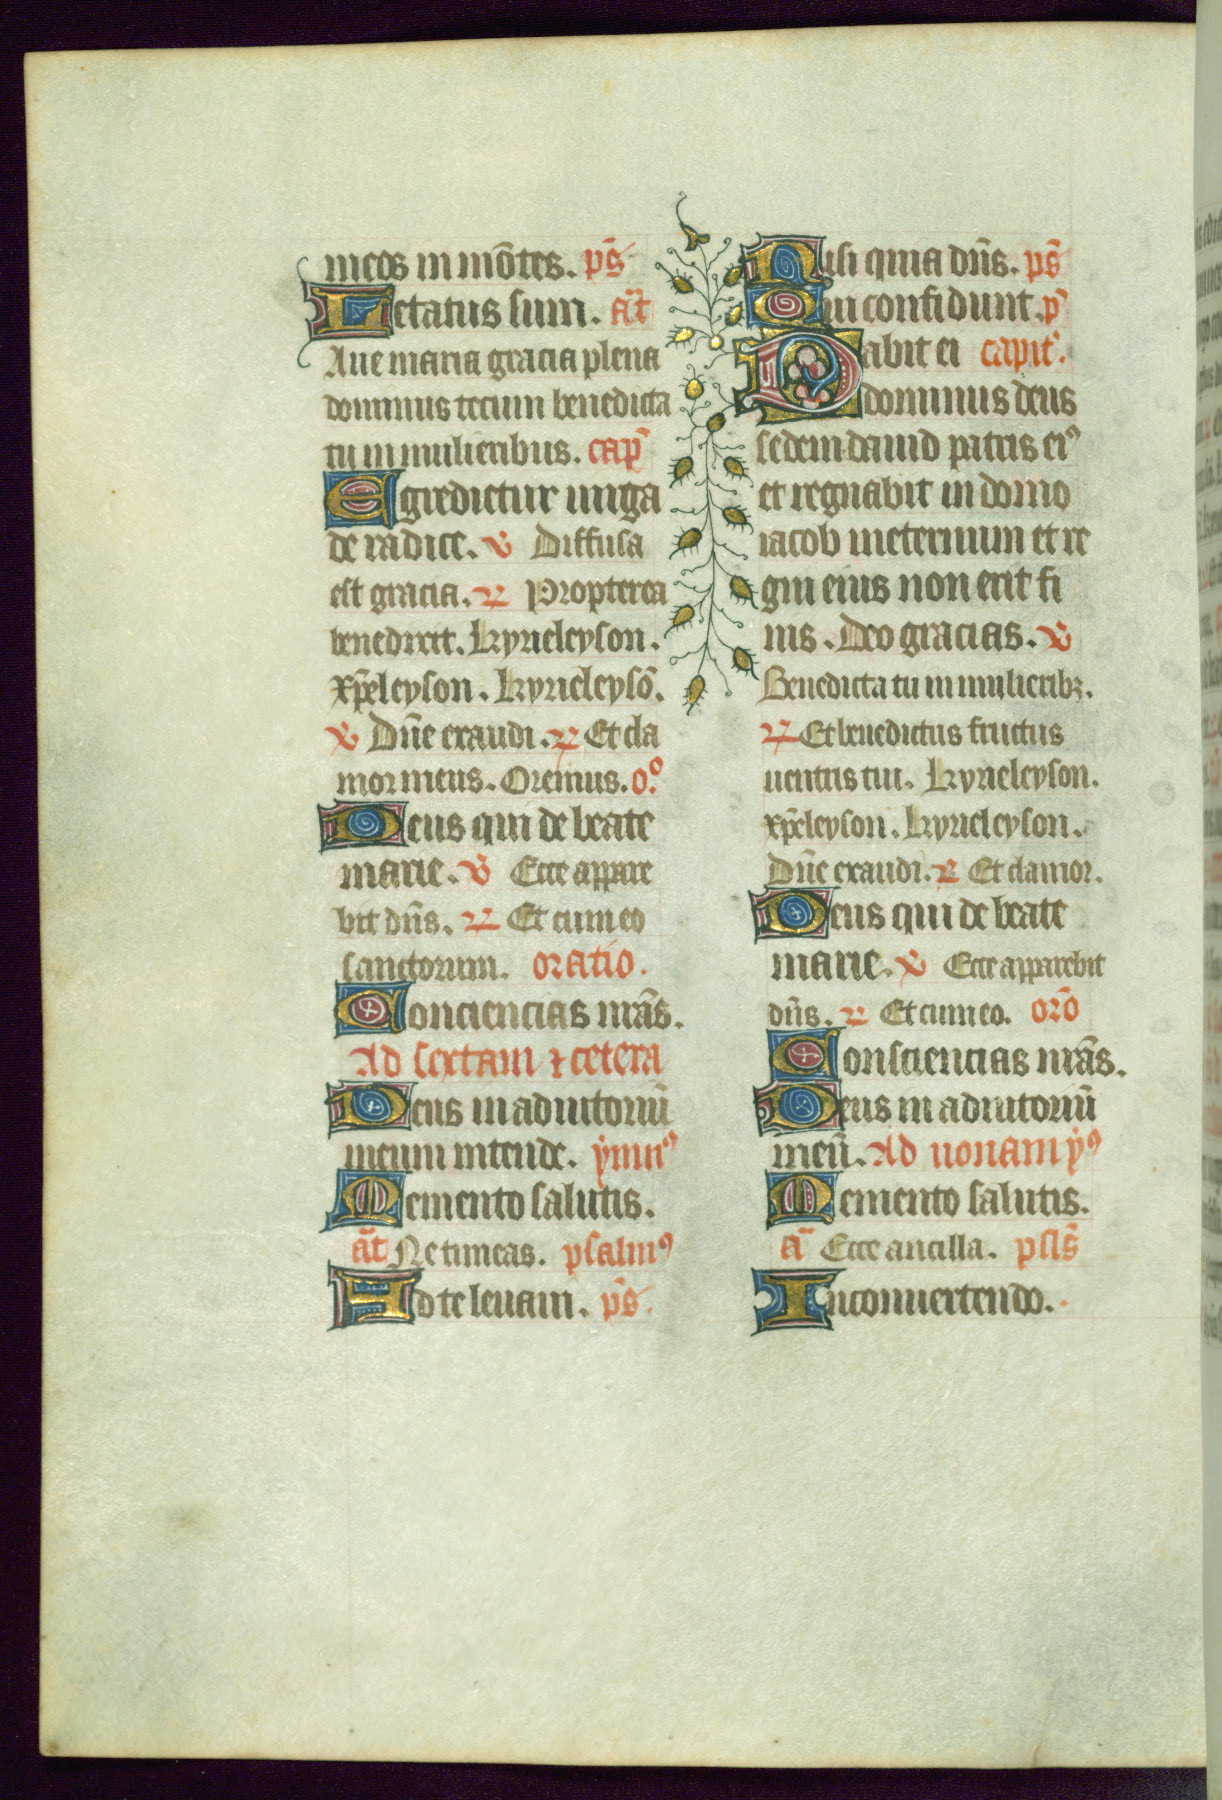 meos in mōtes. ps̄
Letatus sum. añt
Aue maria gracia plena
dominus tecum benedicta
tu in mulieribus. cap̄
Egredietur uirga
de radice. ℣ Diffusa
est gracia. ℟ Propterea
benedixit. kyrieleyson.
xp̄eleyson. kyrieleysō.
℣ Dn̄e exaudi. ℟ Et cla
mor meus. Oremus. oᷣ.
Deus qui de beate
marie. ℣ Ecce appare
bit dn̄s. ℟ Et cum eo
sanctorum. oratio.
Conciencias nr̄as.
Ad sextam ⁊ cetera
Deus in adiutoriū
meum intende. ymnꝰ
Memento salutis.
añt Ne timeas. psalmꝰ
Ad te leuaui. ps̄.
Nisi quia dn̄s. ps̄
Qui confidunt. pꝰ
Dabit ei capitᷣ.
dominus deus
sedem dauid patris eiꝰ
et regnabit in domo
iacob ineternum et re
gni eius non erit fi
nis. Deo gracias. ℣
Benedicta tu in mulieribꝫ.
℟ Et benedictus fructus
uentris tui. kyrieleyson.
xp̄eleyson. kyrieleyson.
Dn̄e exaudi. ℟ Et clamor.
Deus qui de beate
marie. ℣ Ecce apparebit
dn̄s. ℟ Et cum eo. orō
Consciencias nr̄as.
Deus in adiutoriū
meū. Ad nonam yꝰ
Memento salutis.
ā Ecce ancilla. psl̄s
Inconuertendo.